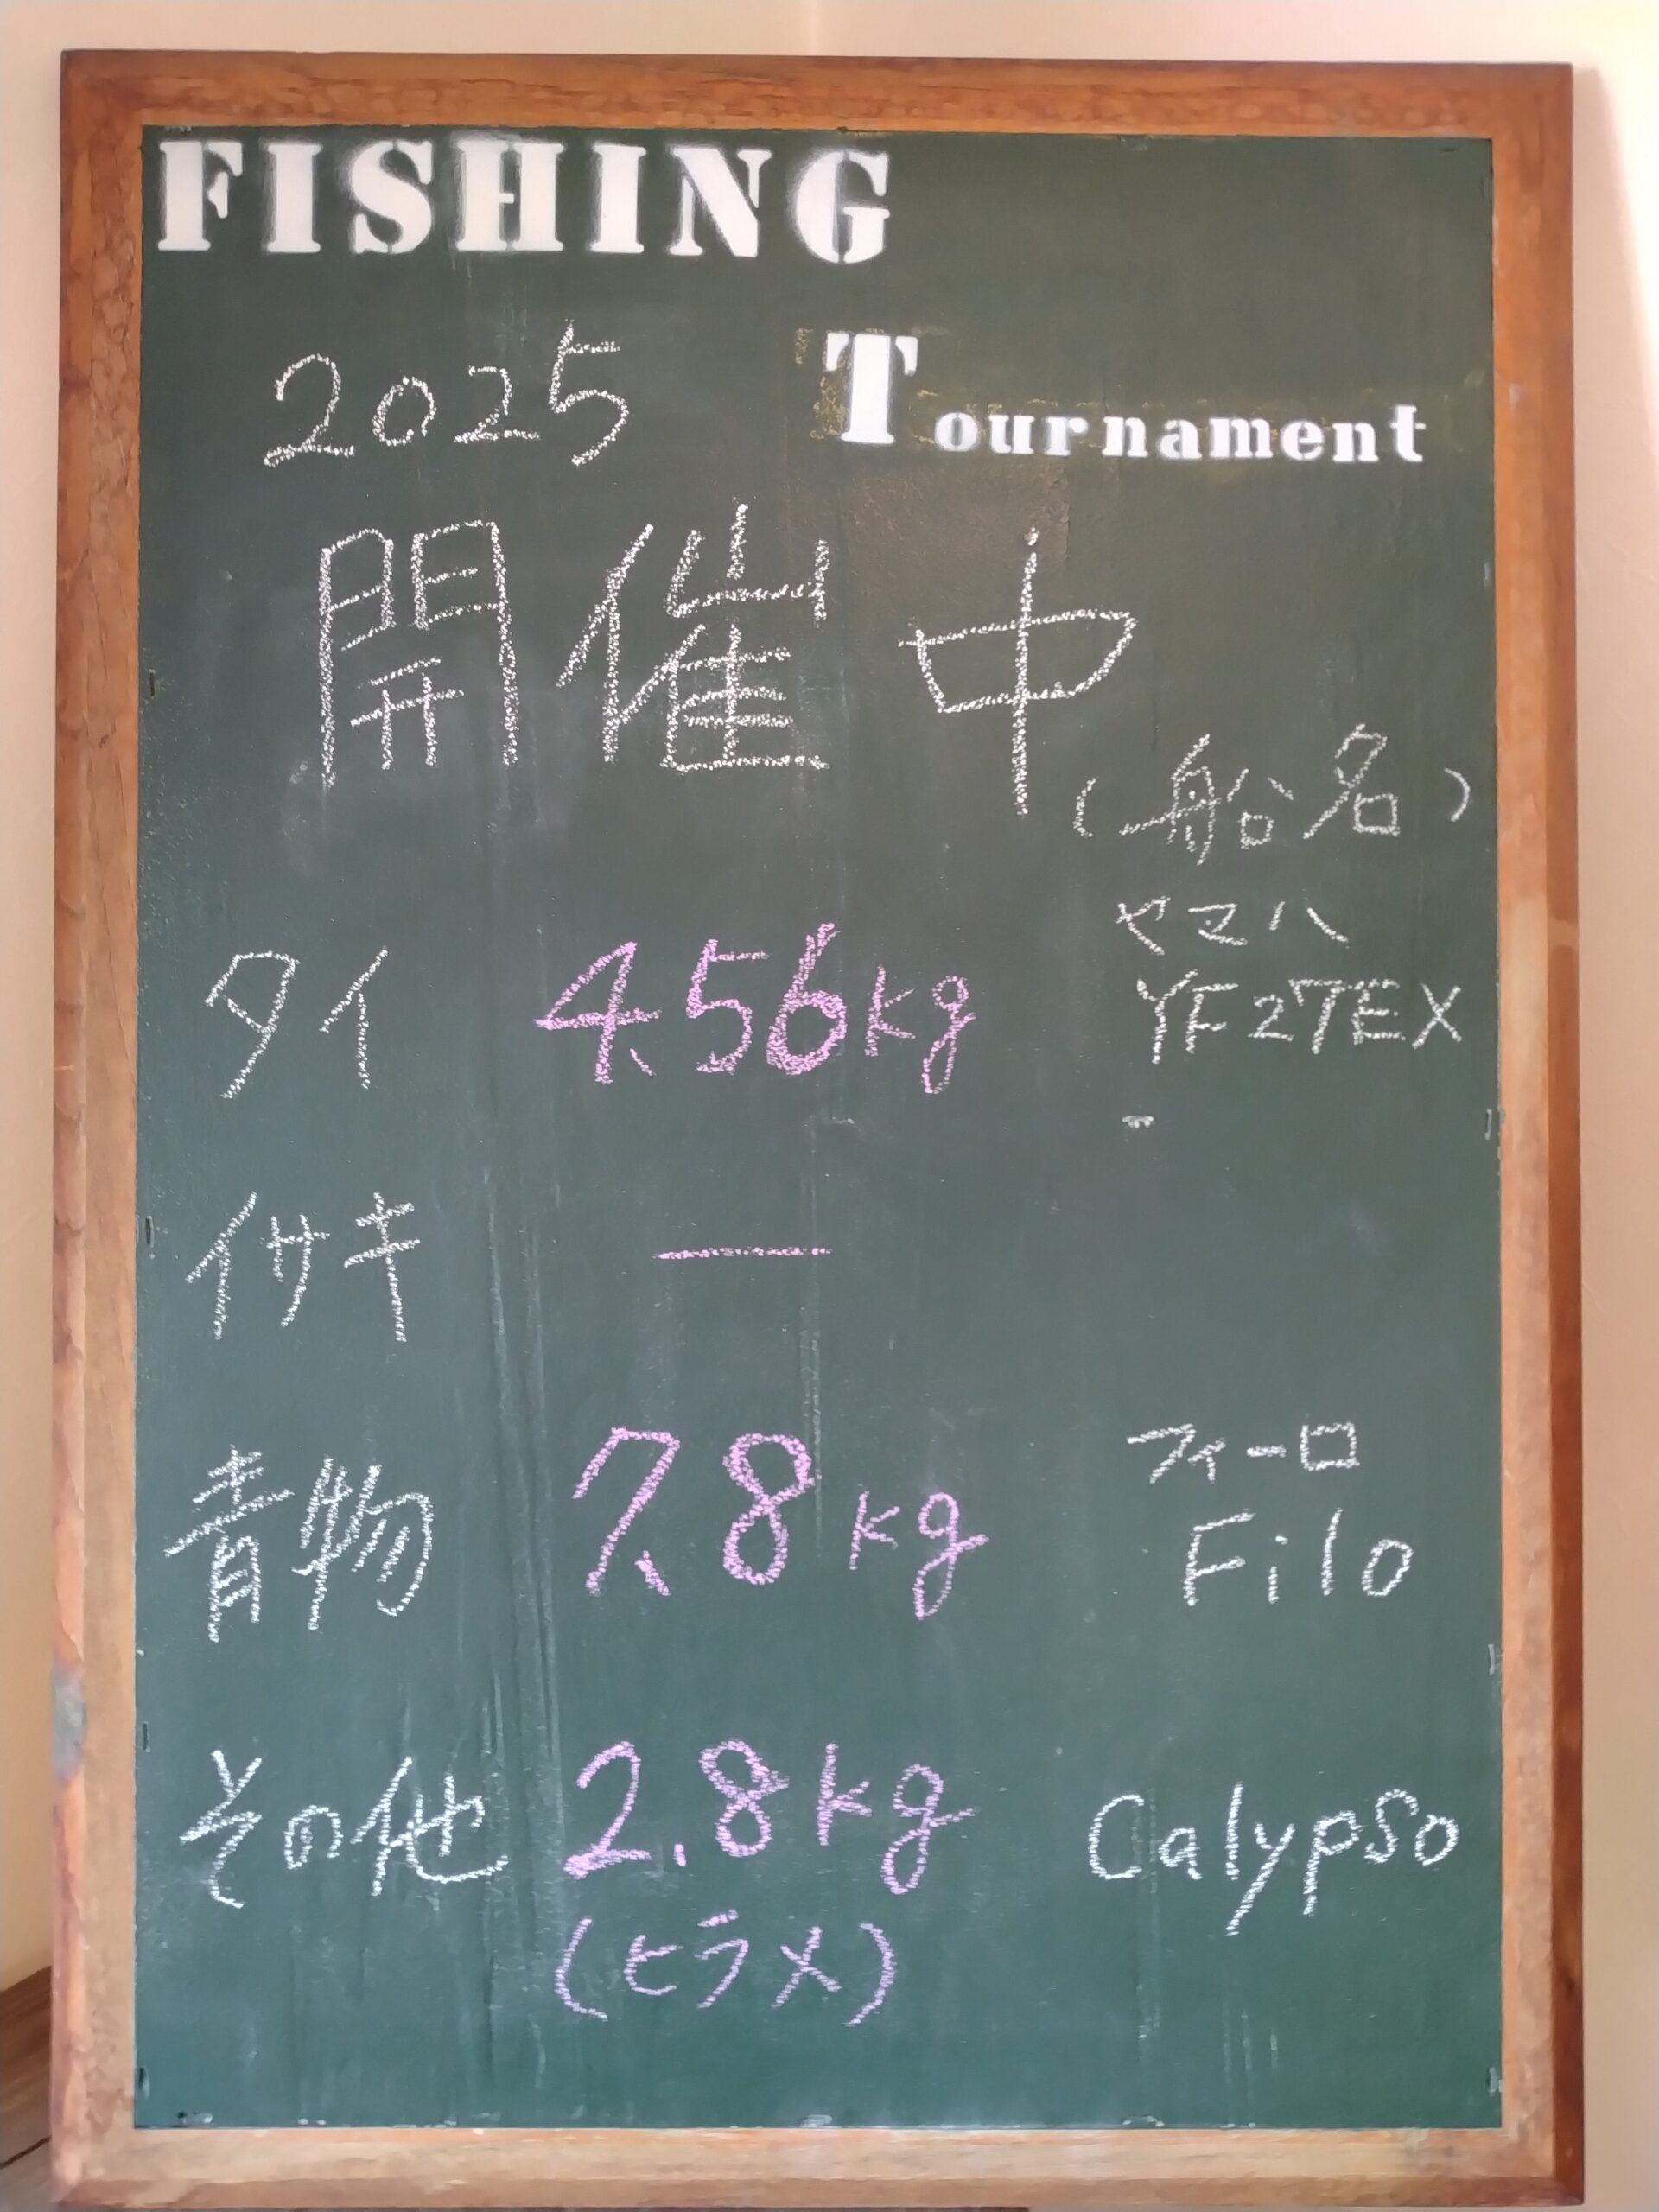 FISHING
2025 Tournament
開催中
(船名)
ヤマハ
タイ 4.56kg YF27EX
イサキ —
フィーロ
青物 7.8kg Filo
その他 2.8kg Calypso
(ヒラメ)